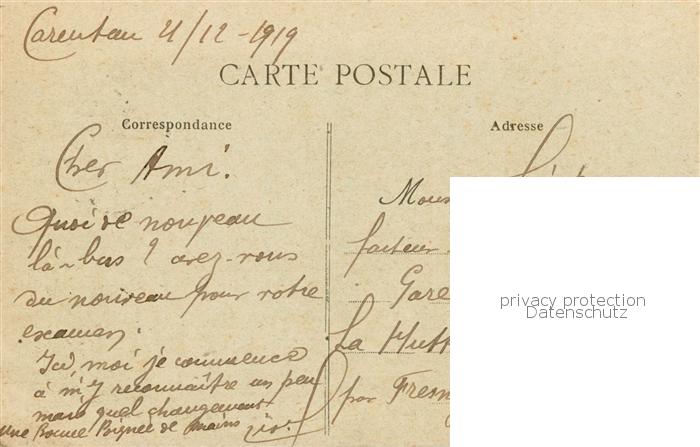 Carentan 21/12-1919
CARTE POSTALE
Correspondance
Cher Ami.
Quoi de nouveau
là-bas ? avez-vous
du nouveau pour votre
examen.
Ici, moi je commence
à m'y reconnaître un peu
mais quel changement
Une Bonne Poignée de mains
Adresse
facteur
Gare
La Hutt
par Fresn
privacy protection
Datenschutz